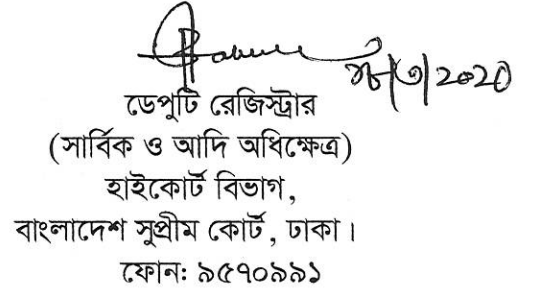 ডেপুটি রেজিস্ট্রার
(সার্বিক ও আদি অধিক্ষেত্র)
হাইকোর্ট বিভাগ,
বাংলাদেশ সুপ্রীম কোর্ট, ঢাকা।
ফোন: ৯৫৭০৯৯১